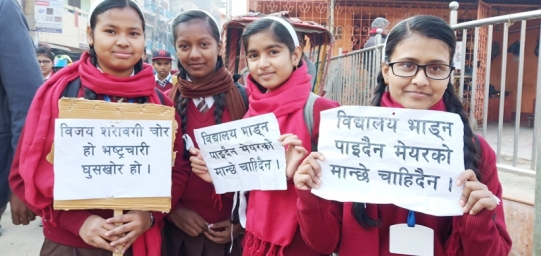 विजय शरावगी चोर
हो भष्ट्रचारी
घुसखोर हो ।
विद्यालय भाड्न
पाइदैन मेयरको
मान्छे चाहिदैन ।
विद्यालय भाड्न
पाइदैन मेयरको
मान्छे चाहिदैन ।